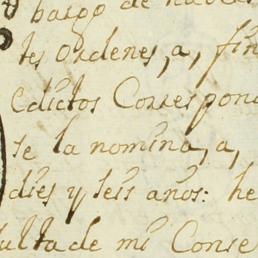 bargo de
tes ordenes, a, fin
Edictos Correspon
se la nomina, a,
dies y seis años: he
sulta de mi Conse